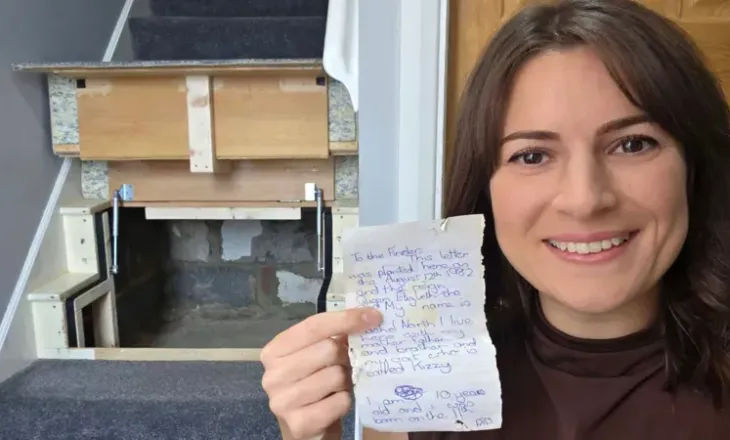 To the Finder,
This letter
was planted here, on
the August 12th 1982
and the reign
Queen Elizabeth the
My name is
Rachel North, I live
here with my
mother, father,
and brother and
my cat who is
called Kizzy
I am 10 years
old and i was
born on the 11th